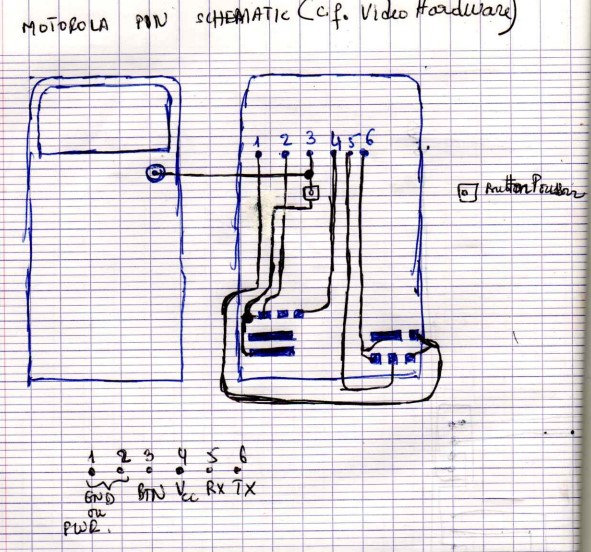 MOTOROLA PIN SCHEMATIC (c.f. Video Hardware)
1 2 3 4 5 6
Button Poussoir
1 2 3 4 5 6
GND BTN Vcc RX TX
ou
PWR.